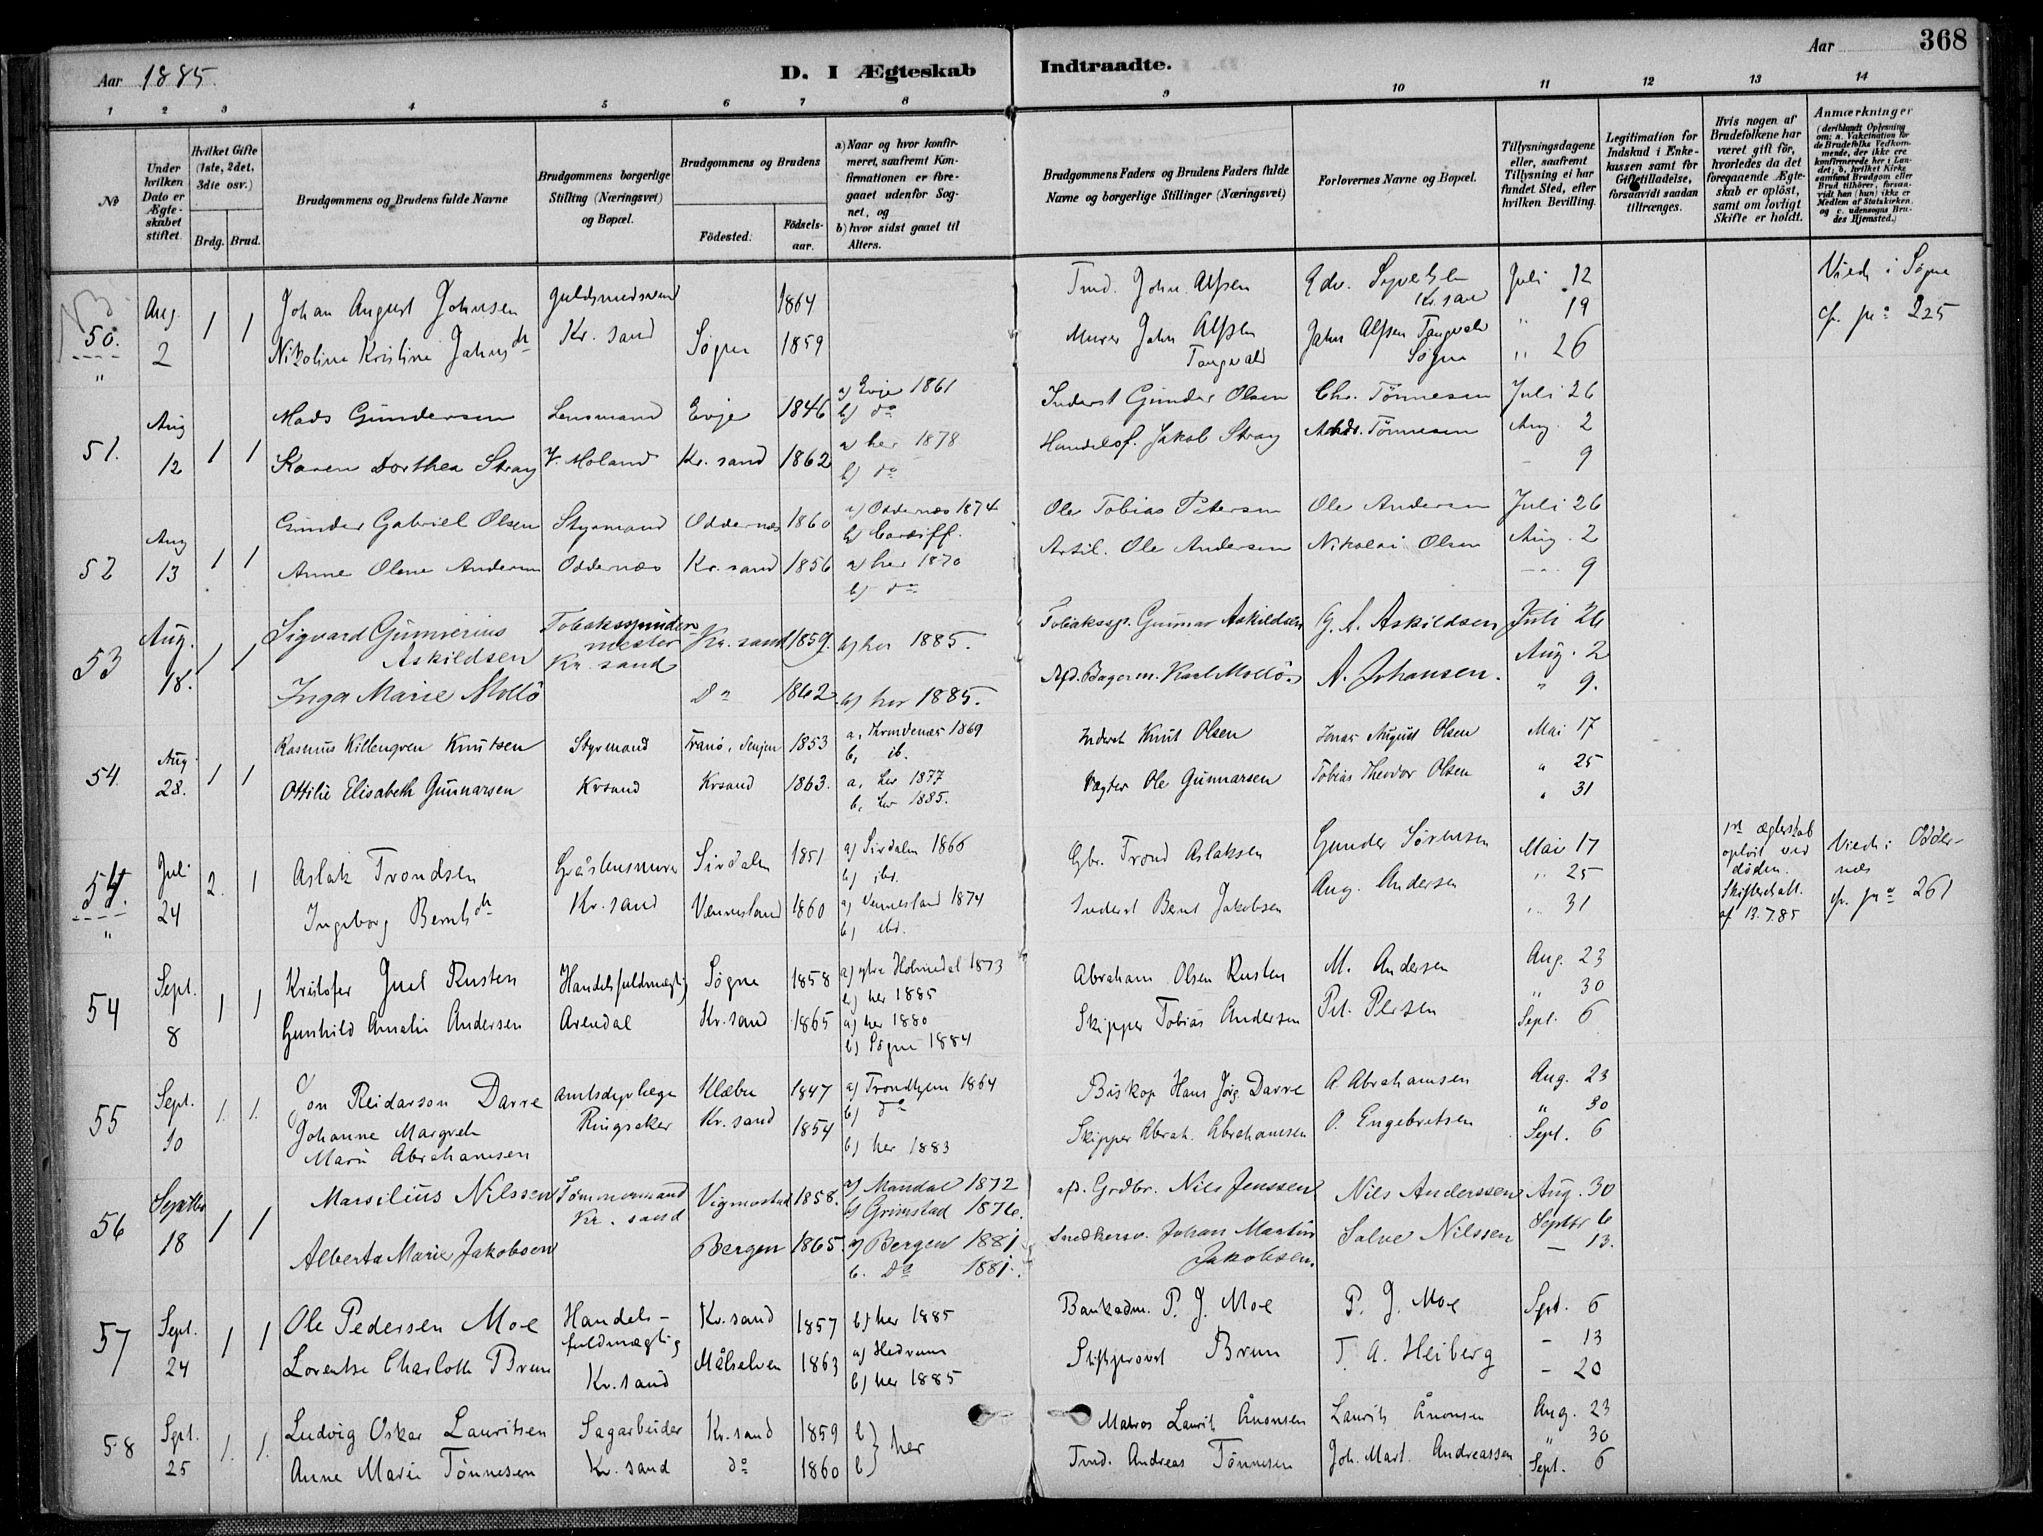 368
Aar 1885.
D. I Ægteskab Indtraadte.
Aar
1 2 3 4 5 6 7 8 9 10 11 12 13 14
No
Under hvilken Dato er Ægteskabet stiftet.
Hvilket Gifte (1ste, 2det, 3die osv.)
Brdg. Brud.
Brudgommens og Brudens fulde Navne
Brudgommens borgerlige Stilling (Næringsvei) og Bopæl.
Brudgommens og Brudens
Födested.
Födsels-aar.
a) Naar og hvor konfirmeret, saafremt Konfirmationen er foregaaet udenfor Sognet, og
b) hvor sidst gaaet til Alters.
Brudgommens Faders og Brudens Faders fulde Navne og borgerlige Stillinger (Næringsvei)
Forlovernes Navne og Bopæl.
Tillysningsdagene eller, saafremt Tillysning ei har fundet Sted, efter hvilken Bevilling.
Legitimation for Indskud i Enkekassen samt for Giftetilladelse, forsaavidt saadan tiltrænges.
Hvis nogen af Brudefolkene har været gift för, hvorledes da det foregaaende Ægteskab er oplöst, samt om lovligt Skifte er holdt.
Anmærkninger (deriblandt Oplysning om: a. Vakcination for de Brudefolks Vedkommende, der ikke ere konfirmerede her i Landet; b. hvilket Kirkesamfund Brudgom eller Brud tilhörer, forsaavidt han (hun) ikke er Medlem af Statskirken, og c. udensogns Brudes Hjemsted.)
50. Aug. 2 1 1
Johan August Johnsen Guldsmedsvend Kr. sand 1864 Tmd. John Alfsen Kr. sand Juli 12
Nikoline Kristine Jahnsdtr Søgne 1859 Murer Jahn Alfsen Tangvald Jahn Alfsen Tangvald Søgne " 19 " 26
Viede i Søgne cfr. pag. 225
51. Aug 12 1 1
Mads Gundersen Lensmand Evje 1846 a) Evje 1861 b) do Inderst Gunder Olsen Chr. Tønnesen Juli 26
Karen Dorthea Stray V. Moland Kr. sand 1862 a) her 1878 b) do Handelsf. Jakob Stray Andr. Tønnesen Aug. 2 - 9
52 Aug 13 1 1
Gunder Gabriel Olsen Styrmand Oddernæs 1860 a) Oddernæs 1874 b) Cardiff. Ole Tobias Petersen Ole Andersen Juli 26
Anne Olene Andersen Oddernæs Kr. sand 1856 a) her 1870 b) do Artil. Ole Andersen Nikolai Olsen Aug. 2 - 9
53 Aug. 18. 1 1
Sigvard Gunverius Askildsen Tobaksspindermester Kr. sand Kr. sand 1859. b) her 1885. Tobakssp. Gunnar Askildsen G. A. Askildsen Juli 26
Inga Marie Mollö Do 1862 b) her 1885. Afd. Bagerm. Karl Mollö A. Johansen. Aug. 2 " 9.
54. Aug. 28. 1 1
Rasmus Killengren Knutsen Styrmand Tranö, Senjen 1853 b, ib. Inderst Knut Olsen Jonas August Olsen Mai 17
Ottilie Elisabeth Gunnarsen Krsand Krsand 1863. a, her 1877 b, her 1885. Vægter Ole Gunnarsen Tobias Theodor Olsen " 25 " 31
54. Juli 24 2. 1
Aslak Trondsen Kr. sand Sirdalen 1851 a) Sirdalen 1866 b) ibd. Gbr. Trond Aslaksen Gunder Sørensen Mai 17
Ingeborg Berntsdtr Vennesland 1860 a) Vennesland 1874 b) ibd. Inderst Bernt Jakobsen Aug. Andersen " 25 " 31
1ste ægteskab opløst ved døden. Skifteatt. af 13.7.85
Viede i Oddernes cfr. pag. 261
54 Sept. 8 1 1
Kristofer Juel Rusten Handelsfuldmægtig Søgne 1858 a) ytre Holmedal 1873 b) her 1885 Abraham Olsen Rusten M. Andersen Aug. 23
Gunhild Amalie Andersen Arendal Kr. sand 1865 a) her 1880 b) Søgne 1884 Skipper Tobias Andersen Pet. Persen " 30 Sept. 6
55 Sept. 10 1. 1.
Jon Reidarson Darre Amtsdyrlæge Klæbu 1847 a) Trondhjem 1864 b) do Biskop Hans Jørg. Darre A. Abrahamsen Aug. 23
Johanne Margreth Marie Abrahamsen Ringsaker Kr. sand 1854 b) her 1883 Skipper Abrah. Abrahamsen O. Engebretsen " 30 Sept. 6
56 Septbr 18 1 1
Marsilius Nilssen Tömmermand Kr. sand Vigmostad 1858. a) Mandal 1872 b) Grimstad 1876. afd. Grdbr. Nils Jenssen Nils Anderssen Aug. 30
Alberta Marie Jakobsen Bergen 1865 a) Bergen 1881. b. Do 1881. Snedkersv. Johan Martin Jakobsen. Salve Nilssen Septbr 6 - 13.
57 Sept. 24 1 1
Ole Pedersen Moe Handelsfuldmægtig Kr. sand 1857 b) her 1885 Bankadm. P. J. Moe P. J. Moe Sept. 6
Lorentse Charlotte Brun Kr. sand Målselven 1863 a) Hedrum b) her 1885 Stiftsprovst Brun T. A. Heiberg - 13 - 20
58 Sept. 25 1. 1.
Ludvig Oskar Lauritsen Sagarbeider Kr. sand 1859 b) her Matros Laurits Ånonsen Laurits Ånonsen Aug. 23
Anne Marie Tönnesen Kr. sand do 1860 b) Tmd. Andreas Tönnesen Joh. Mart. Andreassen " 30 Sept. 6